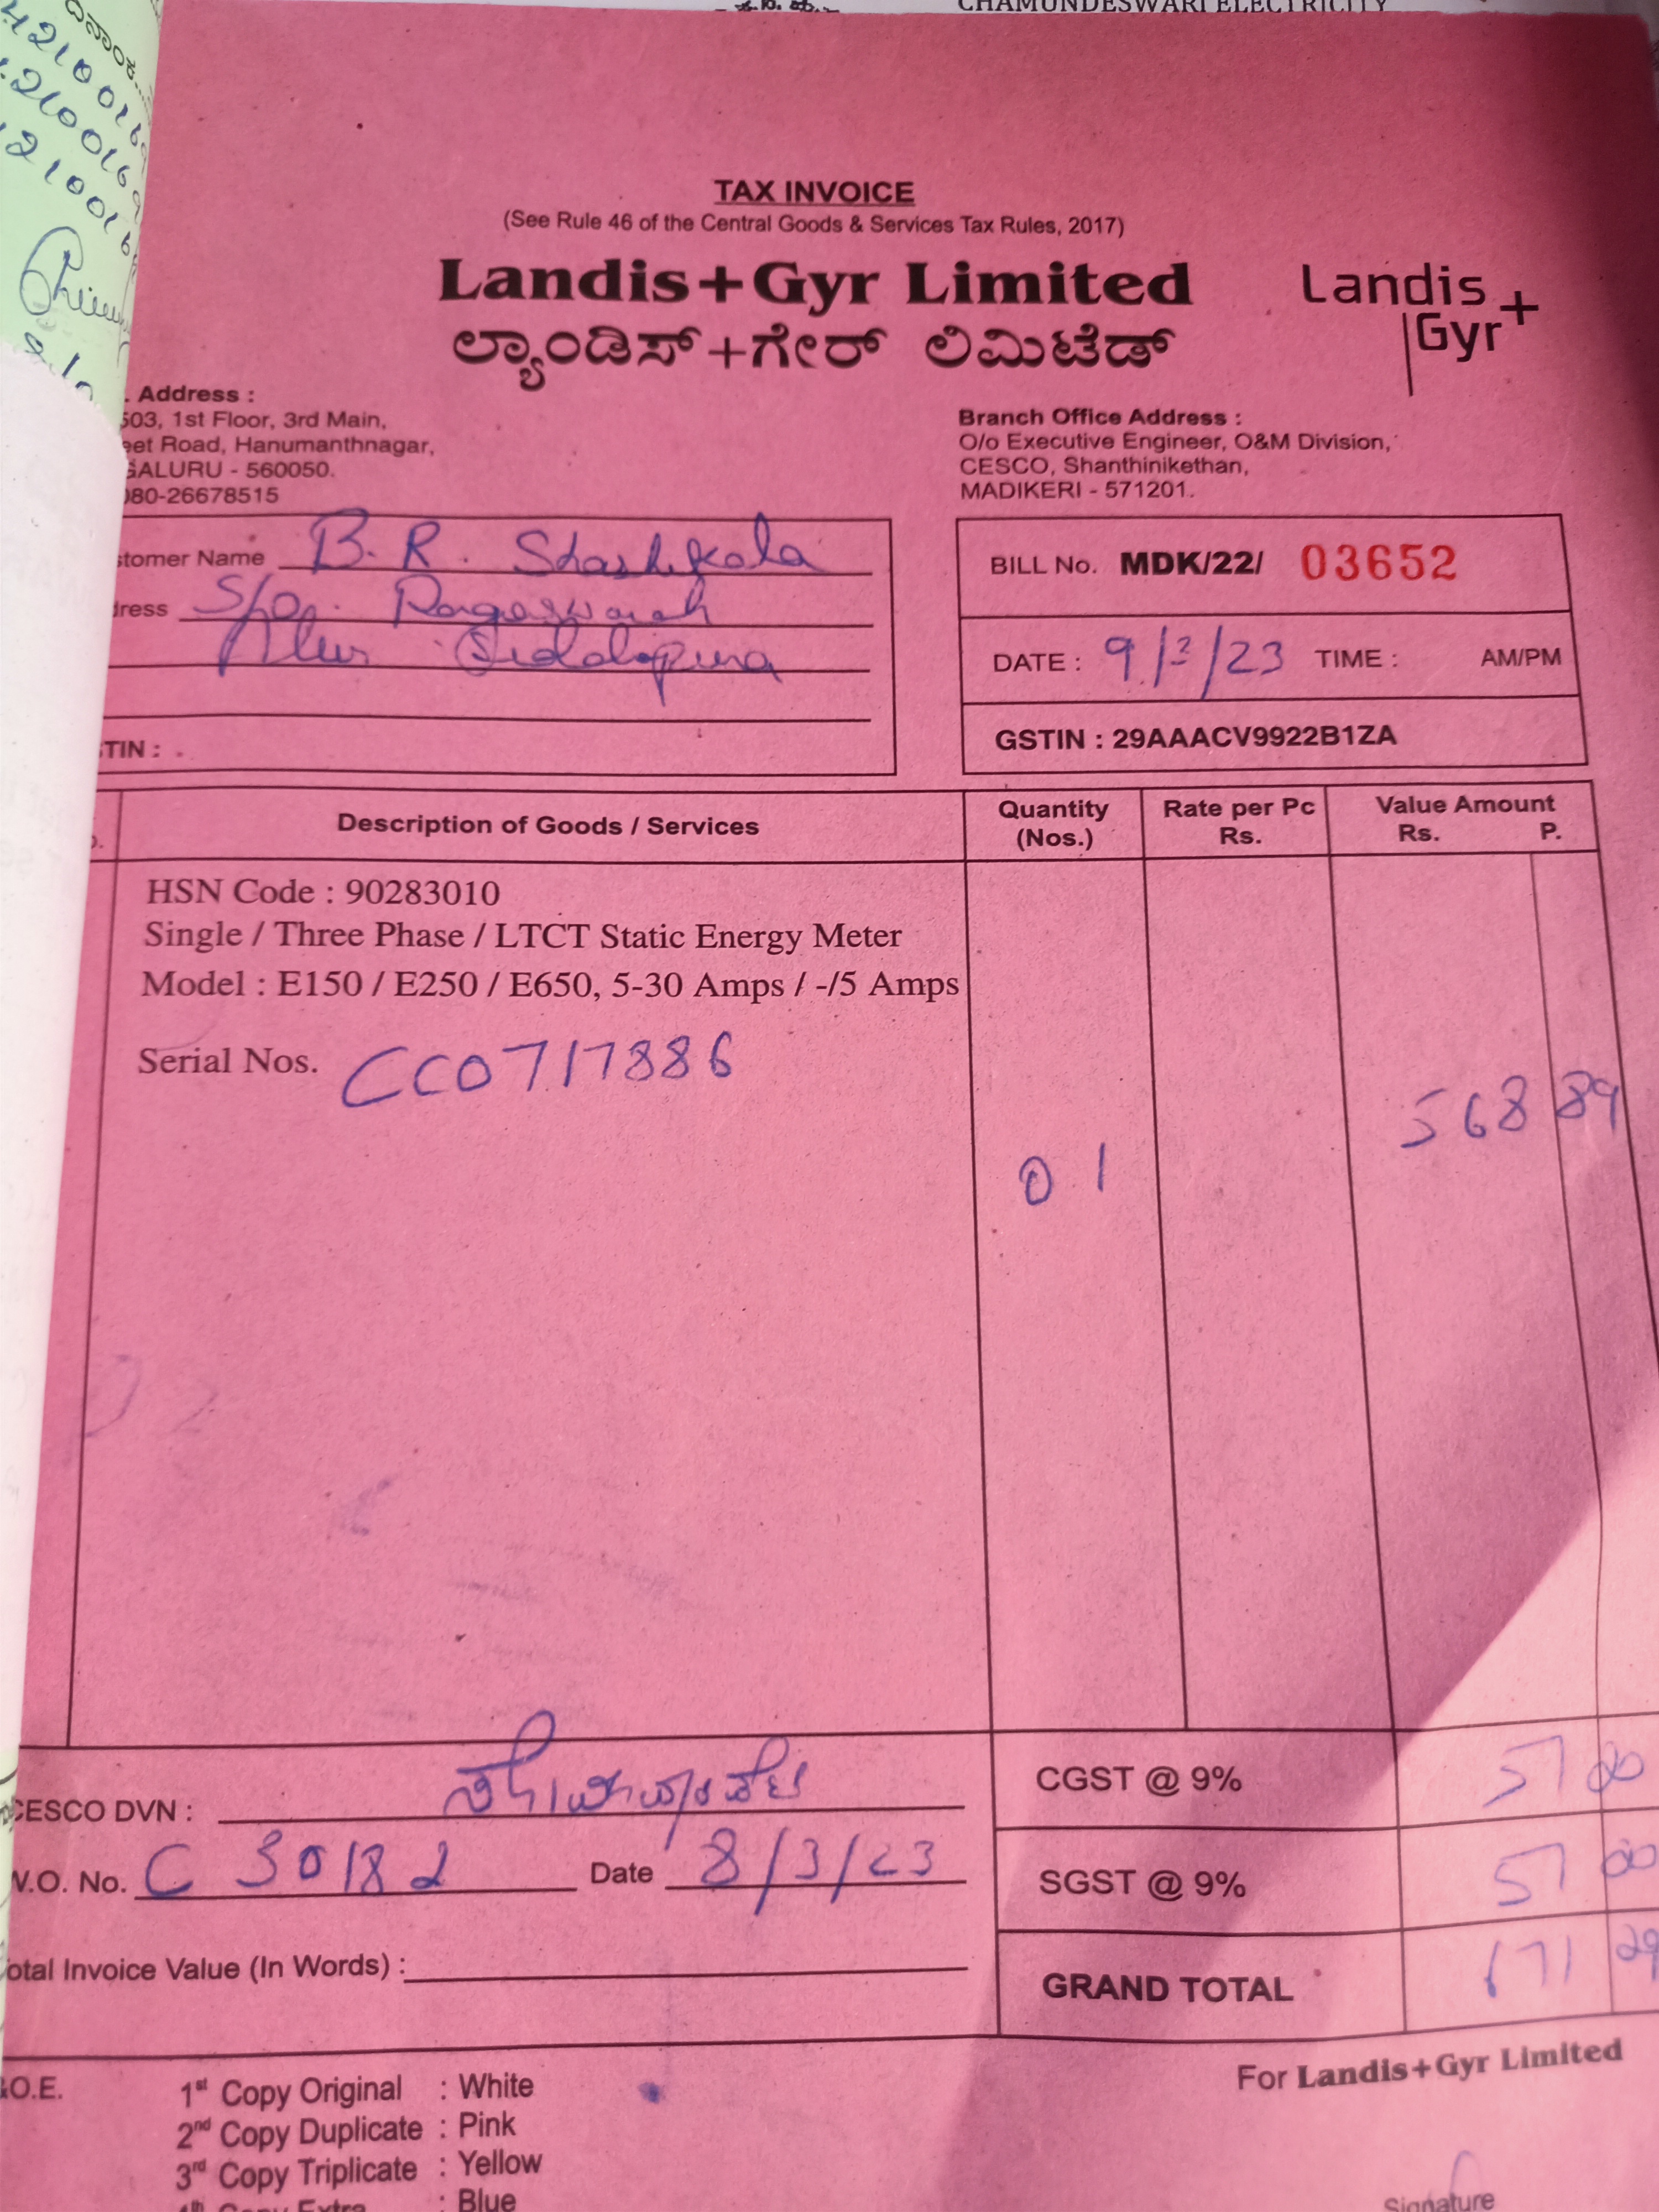 CHAMUNDESWARI ELECTRICITY
TAX INVOICE
(See Rule 46 of the Central Goods & Services Tax Rules, 2017)
Landis+Gyr Limited
ಲ್ಯಾಂಡಿಸ್+ಗೇರ್ ಲಿಮಿಟೆಡ್
Landis+
Gyr
. Address :
503, 1st Floor, 3rd Main,
eet Road, Hanumanthnagar,
GALURU - 560050.
080-26678515
Branch Office Address :
O/o Executive Engineer, O&M Division,
CESCO, Shanthinikethan,
MADIKERI - 571201.
stomer Name B. R. Shashikala
dress S/o.
Siddapura
TIN :
BILL No. MDK/22/ 03652
DATE : 9/3/23 TIME : AM/PM
GSTIN : 29AAACV9922B1ZA
Description of Goods / Services
Quantity (Nos.)
Rate per Pc Rs.
Value Amount Rs. P.
HSN Code : 90283010
Single / Three Phase / LTCT Static Energy Meter
Model : E150 / E250 / E650, 5-30 Amps / -/5 Amps
Serial Nos. CC0717886
01 568 89
CESCO DVN :
W.O. No. C 30182 Date 8/3/23
otal Invoice Value (In Words) :
CGST @ 9% 51 20
SGST @ 9% 51 20
GRAND TOTAL 671 29
For Landis+Gyr Limited
&O.E.
1st Copy Original : White
2nd Copy Duplicate : Pink
3rd Copy Triplicate : Yellow
4th Copy Extra : Blue
Signature